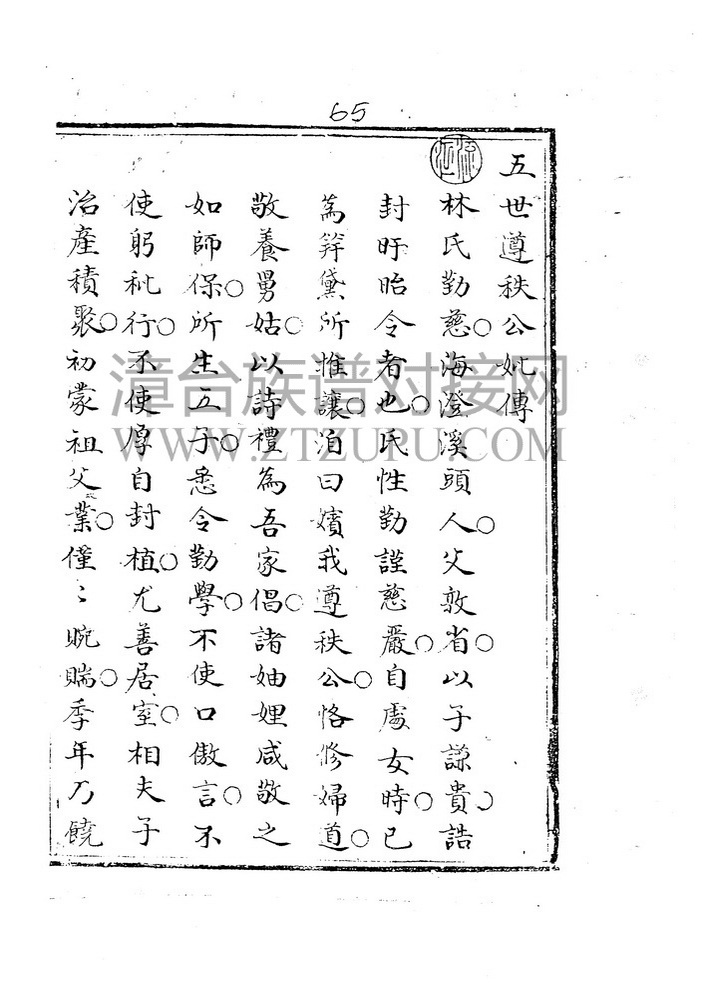 65
五世遵秩公妣傳
林氏勤慈○海澄溪頭人○父敦省○以子諒貴○誥
封盱眙令者也○氏性勤謹慈嚴○自處女時○已
為笄黛所推讓○洎曰嬪我遵秩公○恪修婦道○
敬養舅姑○以詩禮為吾家倡○諸妯娌咸敬之
如師保○所生五子○悉令勤學○不使口傲言○不
使躬秕行○不使厚自封植○尤善居室○相夫子
治產積聚○初蒙祖父業○僅〻賑賙○季年乃饒
漳台族谱对接网
WWW.ZTZUPU.COM